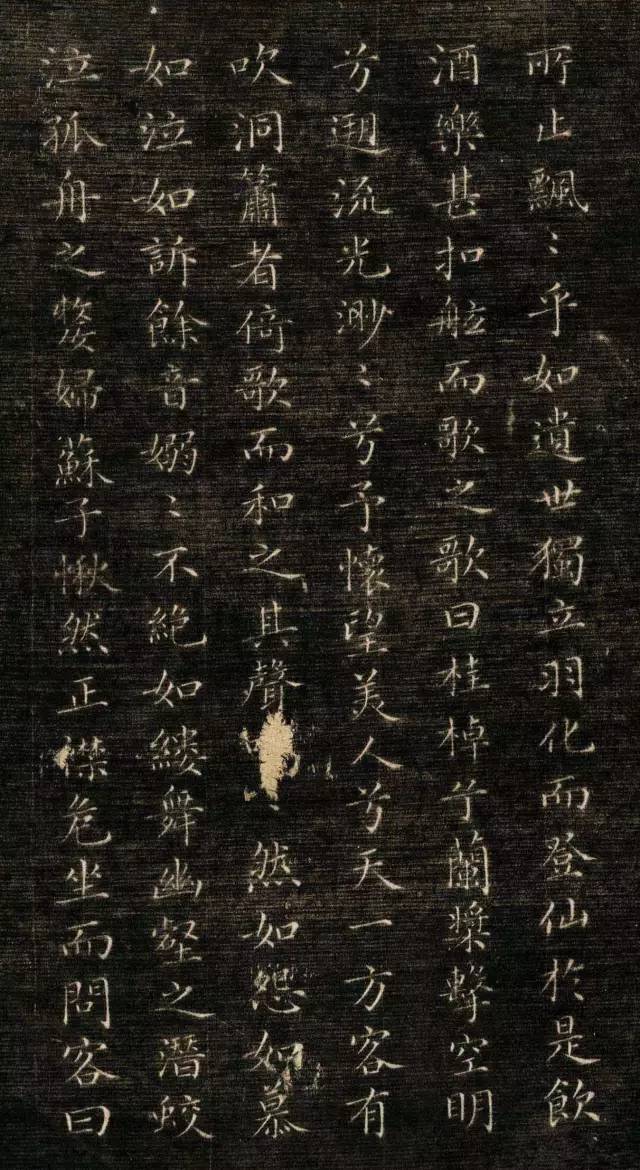 所止飄〻乎如遺世獨立羽化而登仙於是飲
酒樂甚扣舷而歌之歌曰桂棹兮蘭槳擊空明
兮遡流光渺〻兮予懷望美人兮天一方客有
吹洞簫者倚歌而和之其聲〻然如怨如慕
如泣如訴餘音嫋〻不絕如縷舞幽壑之潛蛟
泣孤舟之嫠婦蘇子愀然正襟危坐而問客曰